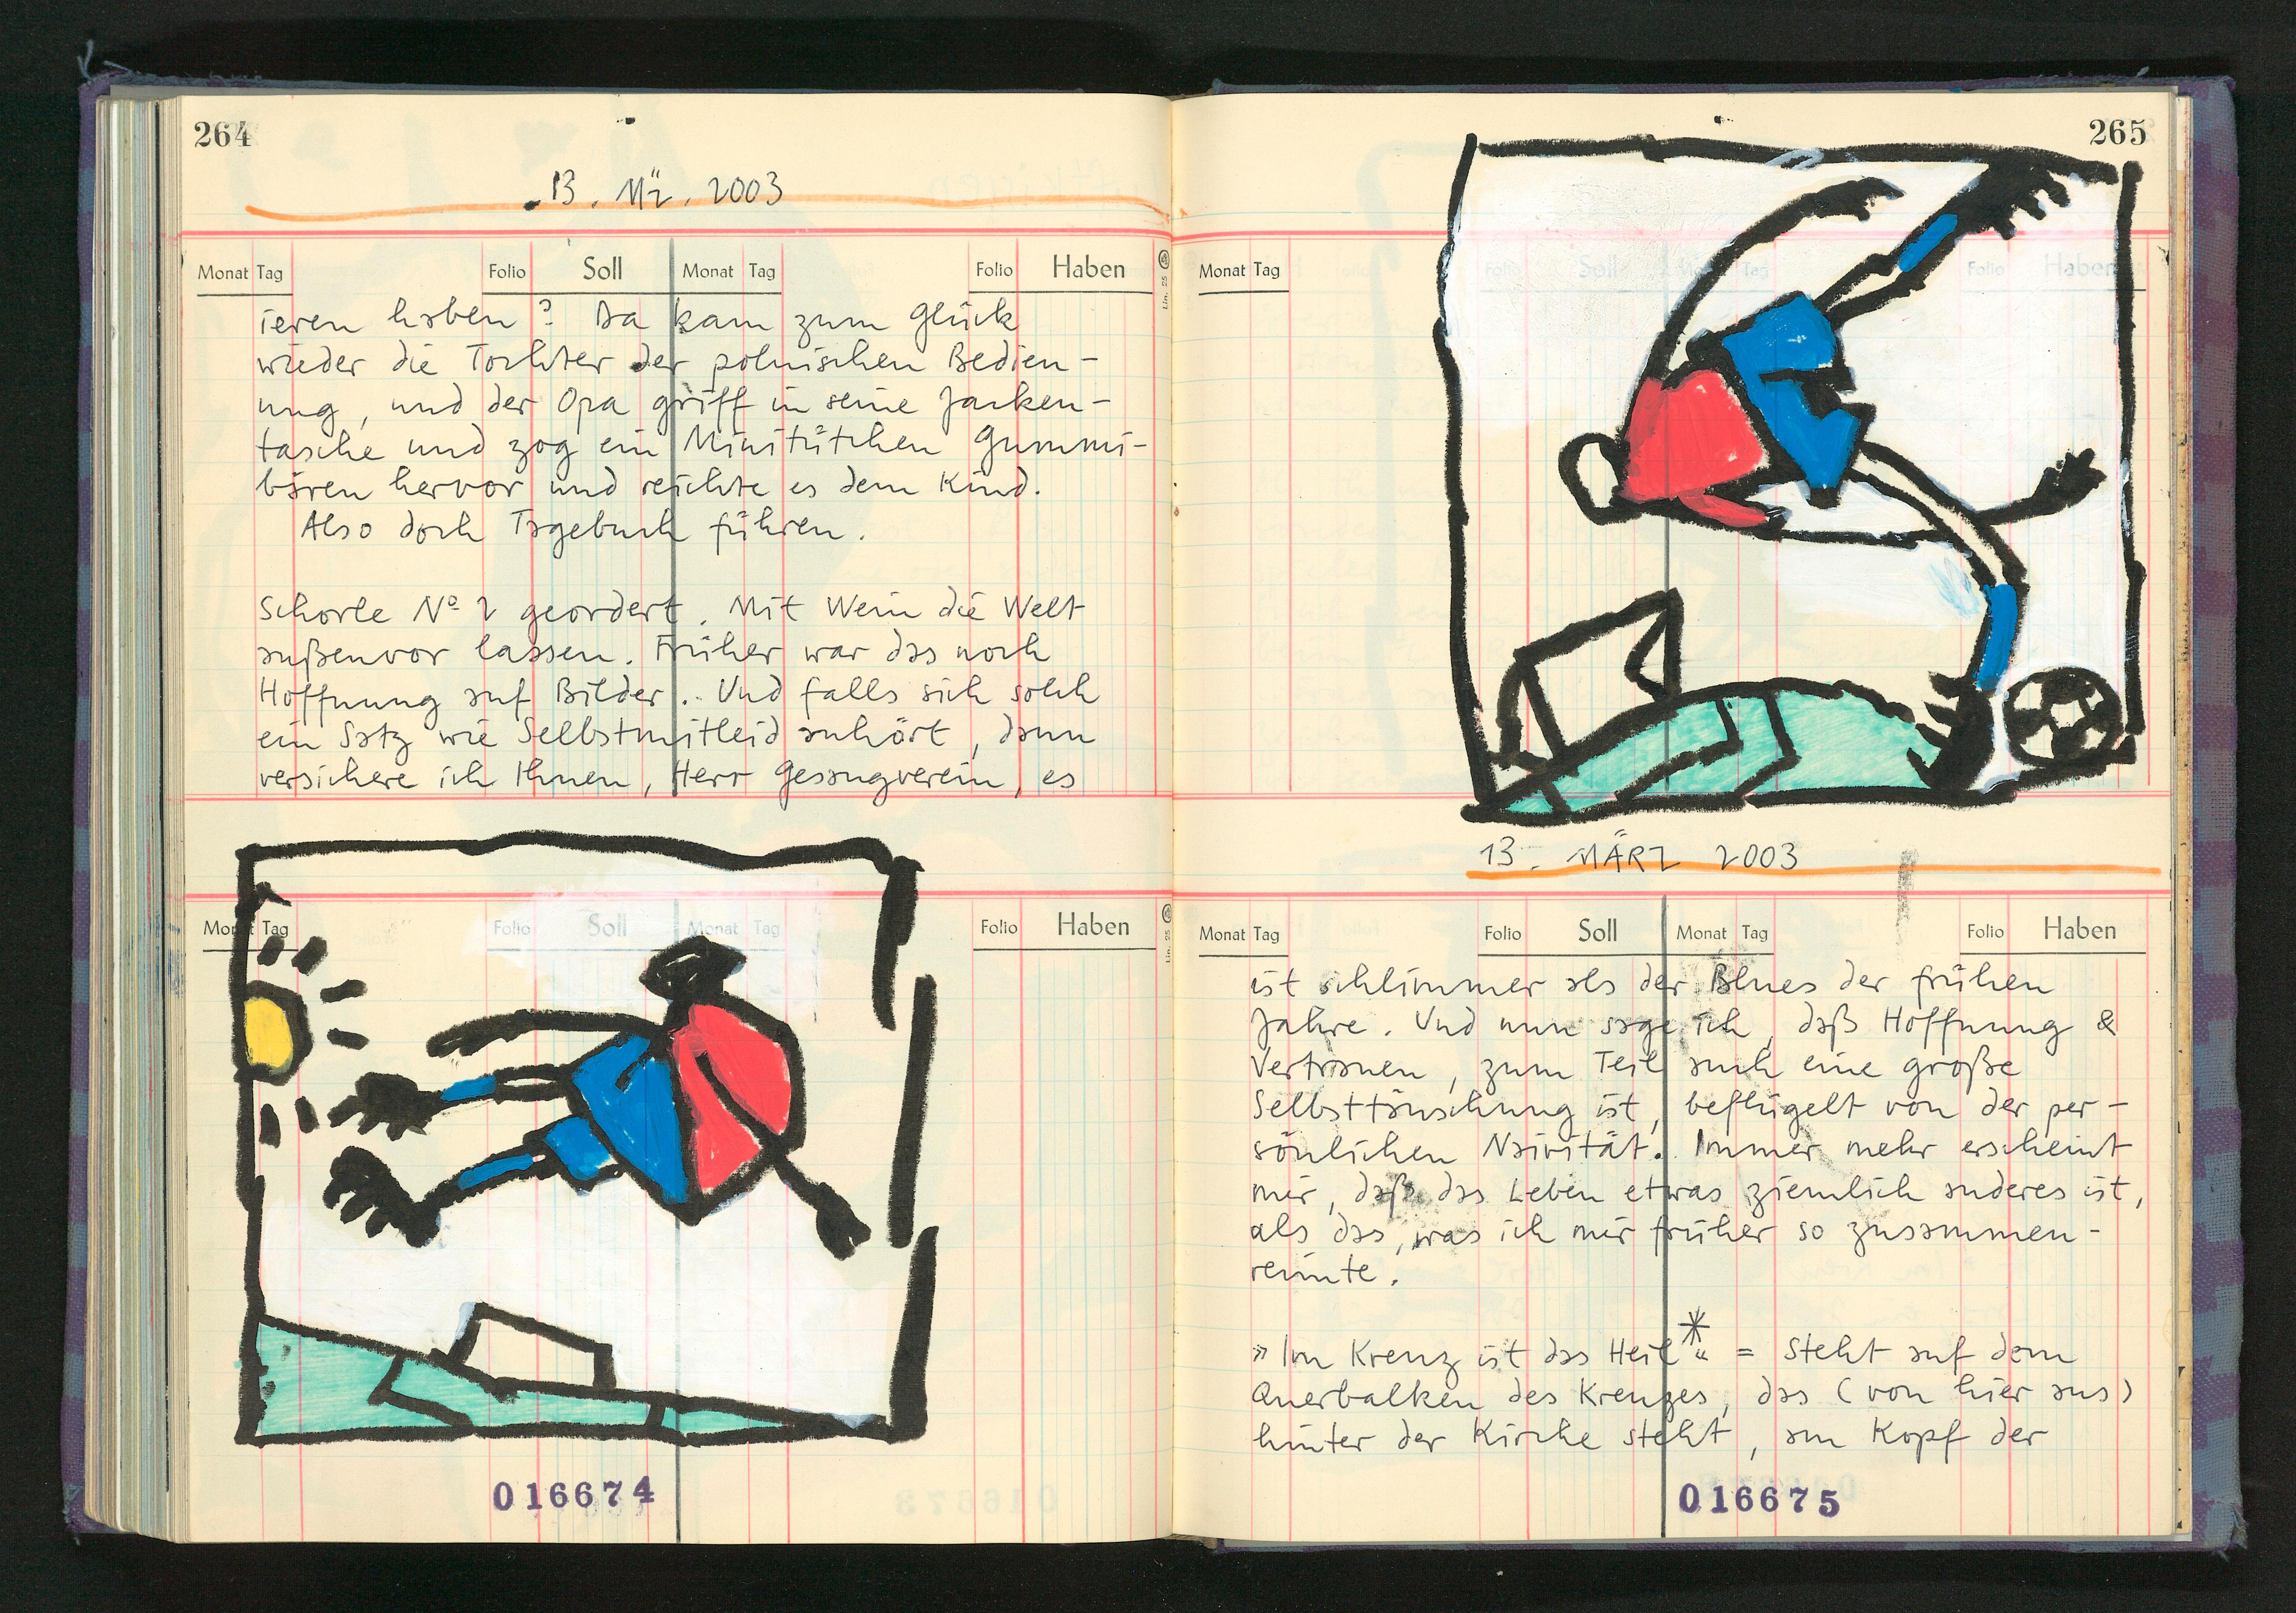 264
13. Mz. 2003
Monat Tag Folio Soll Monat Tag Folio Haben
ieren haben? Da kam zum Glück
wieder die Tochter der polnischen Bedien-
ung, und der Opa griff in seine Jacken-
tasche und zog ein Minitütchen Gummi-
bären hervor und reichte es dem Kind.
Also doch Tagebuch führen.
Schorle No 2 geordert. Mit Wein die Welt
außenvor lassen. Früher war das noch
Hoffnung auf Bilder. Und falls sich solch
ein Satz wie Selbstmitleid anhört, dann
versichere ich Ihnen, Herr Gesangverein, es
Monat Tag Folio Soll Monat Tag Folio Haben
016674
265
Monat Tag Folio Soll Monat Tag Folio Haben
13. MÄRZ 2003
Monat Tag Folio Soll Monat Tag Folio Haben
ist schlimmer als der Blues der frühen
Jahre. Und nun sage ich, daß Hoffnung &
Vertrauen, zum Teil auch eine große
Selbsttäuschung ist, beflügelt von der per-
sönlichen Naivität. Immer mehr erscheint
mir, daß das Leben etwas ziemlich anderes ist,
als das, was ich mir früher so zusammen-
reimte.
»Im Kreuz ist das Heil*« = Steht auf dem
Querbalken des Kreuzes, das (von hier aus)
hinter der Kirche steht, am Kopf der
016675